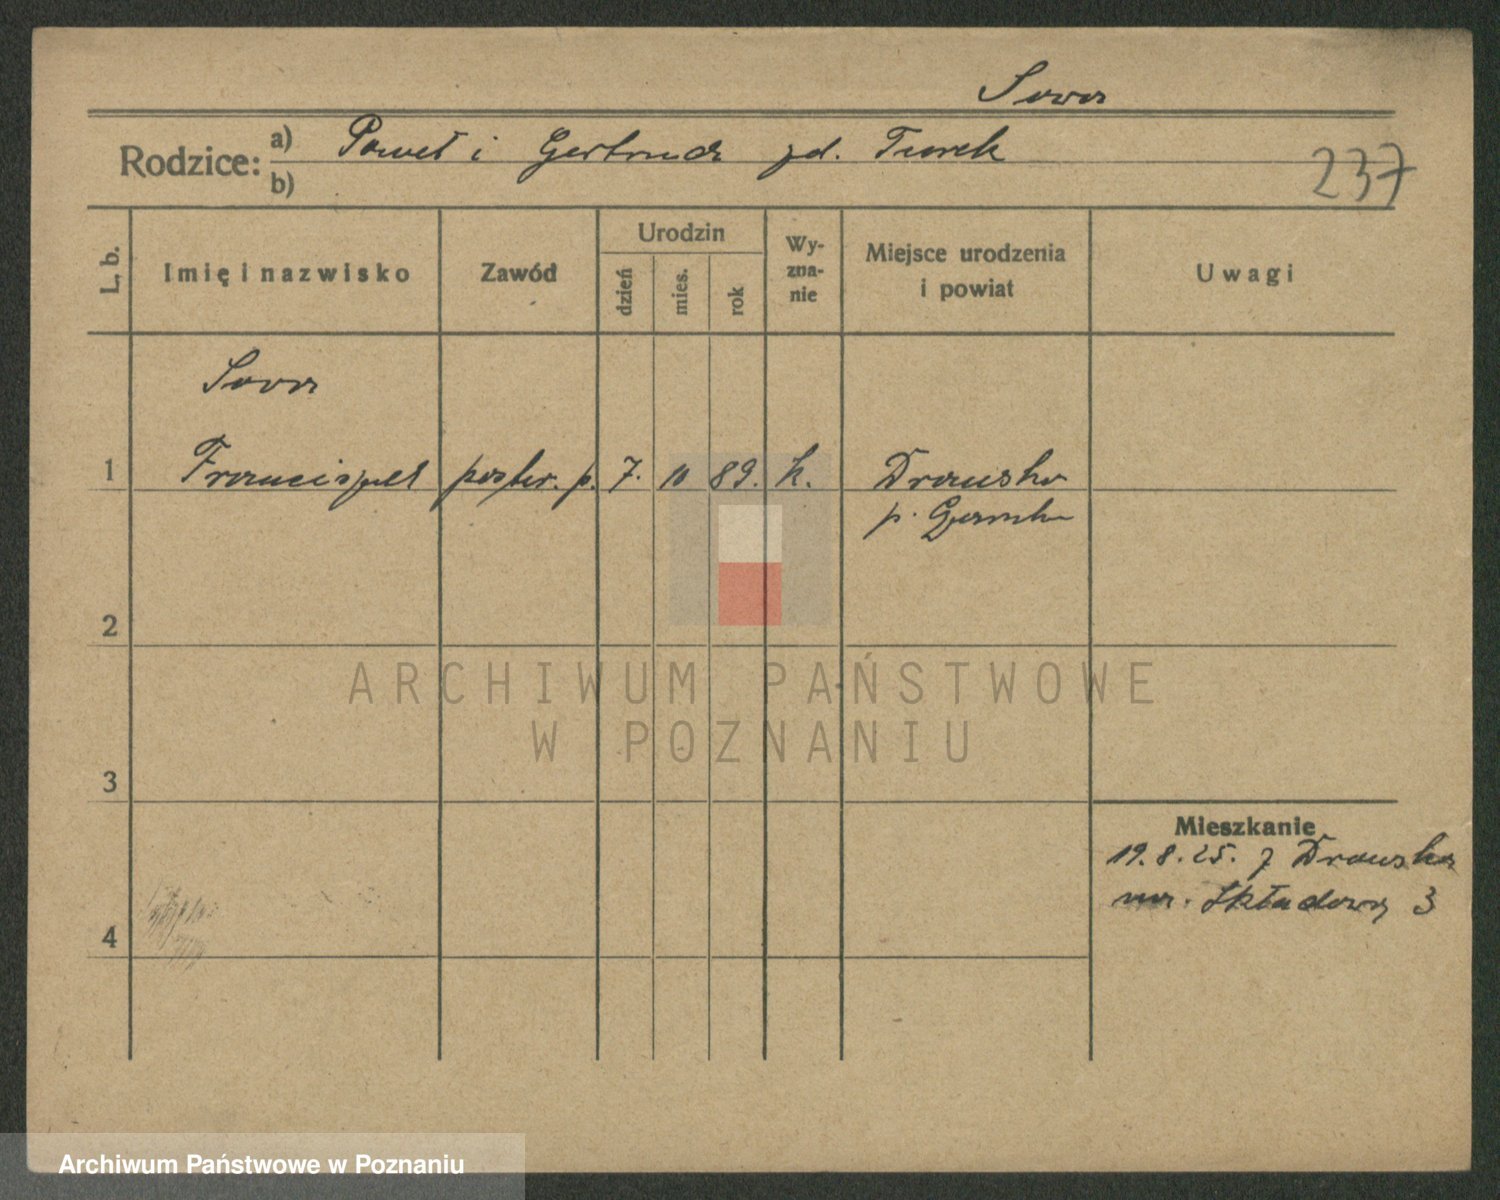 Sowa
Rodzice: a) Paweł i Gertruda zd. Turek
b)
237
L. b.
Imię i nazwisko
Zawód
Urodzin
dzień
mies.
rok
Wy-
zna-
nie
Miejsce urodzenia
i powiat
Uwagi
Sowa
1 Franciszek poster. p. 7. 10 89. k. Drawsko
p.
2
3
4
Mieszkanie
19.8.25. z Drawska
Składowa 3
ARCHIWUM PAŃSTWOWE
W POZNANIU
Archiwum Państwowe w Poznaniu